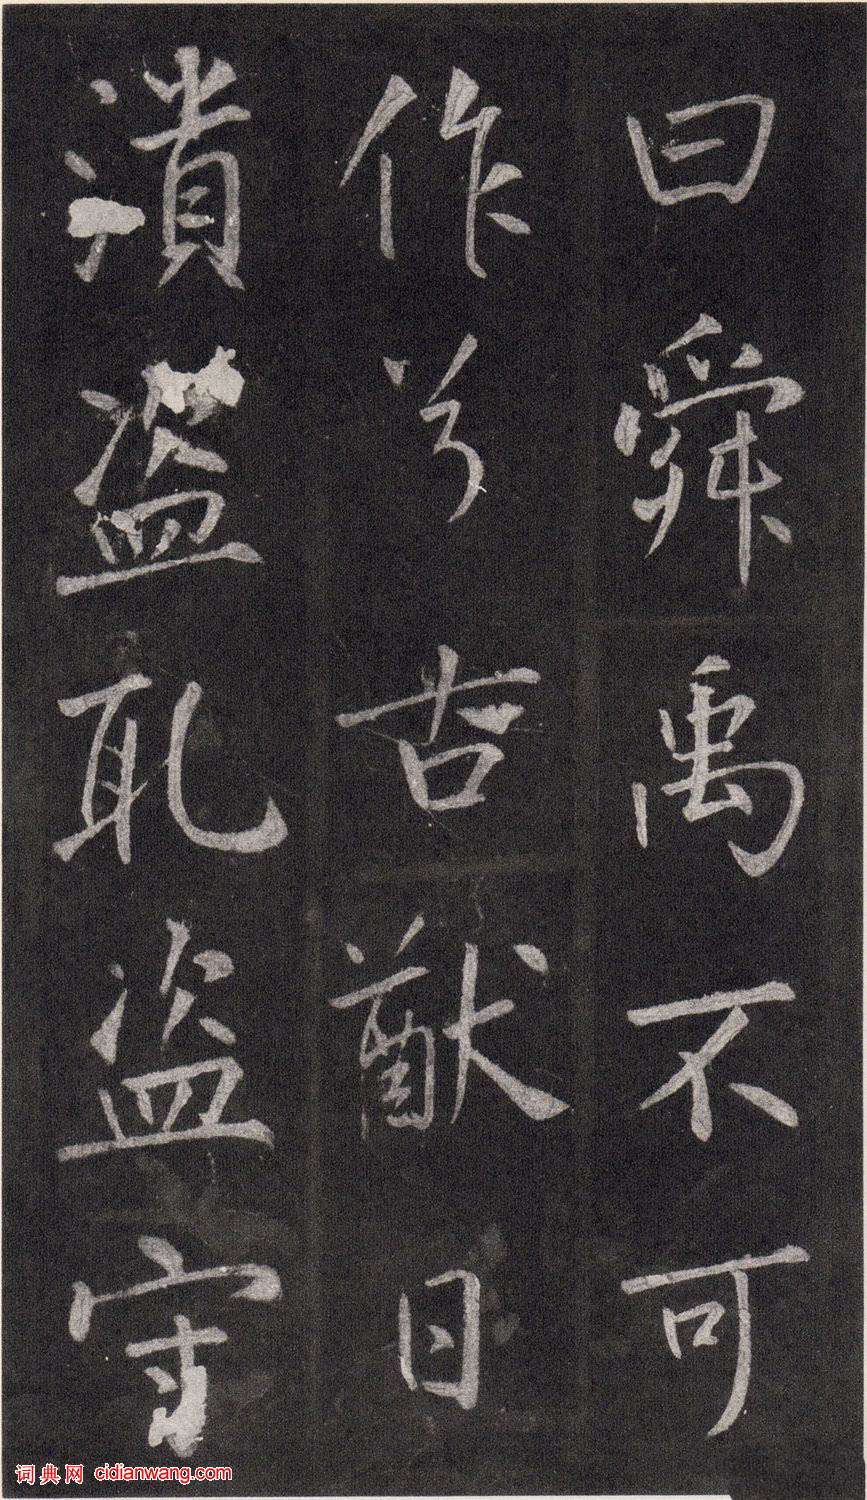 曰舜禹不可
作兮古猷日
潰盜亂盜守
词典网 cidianwang.com